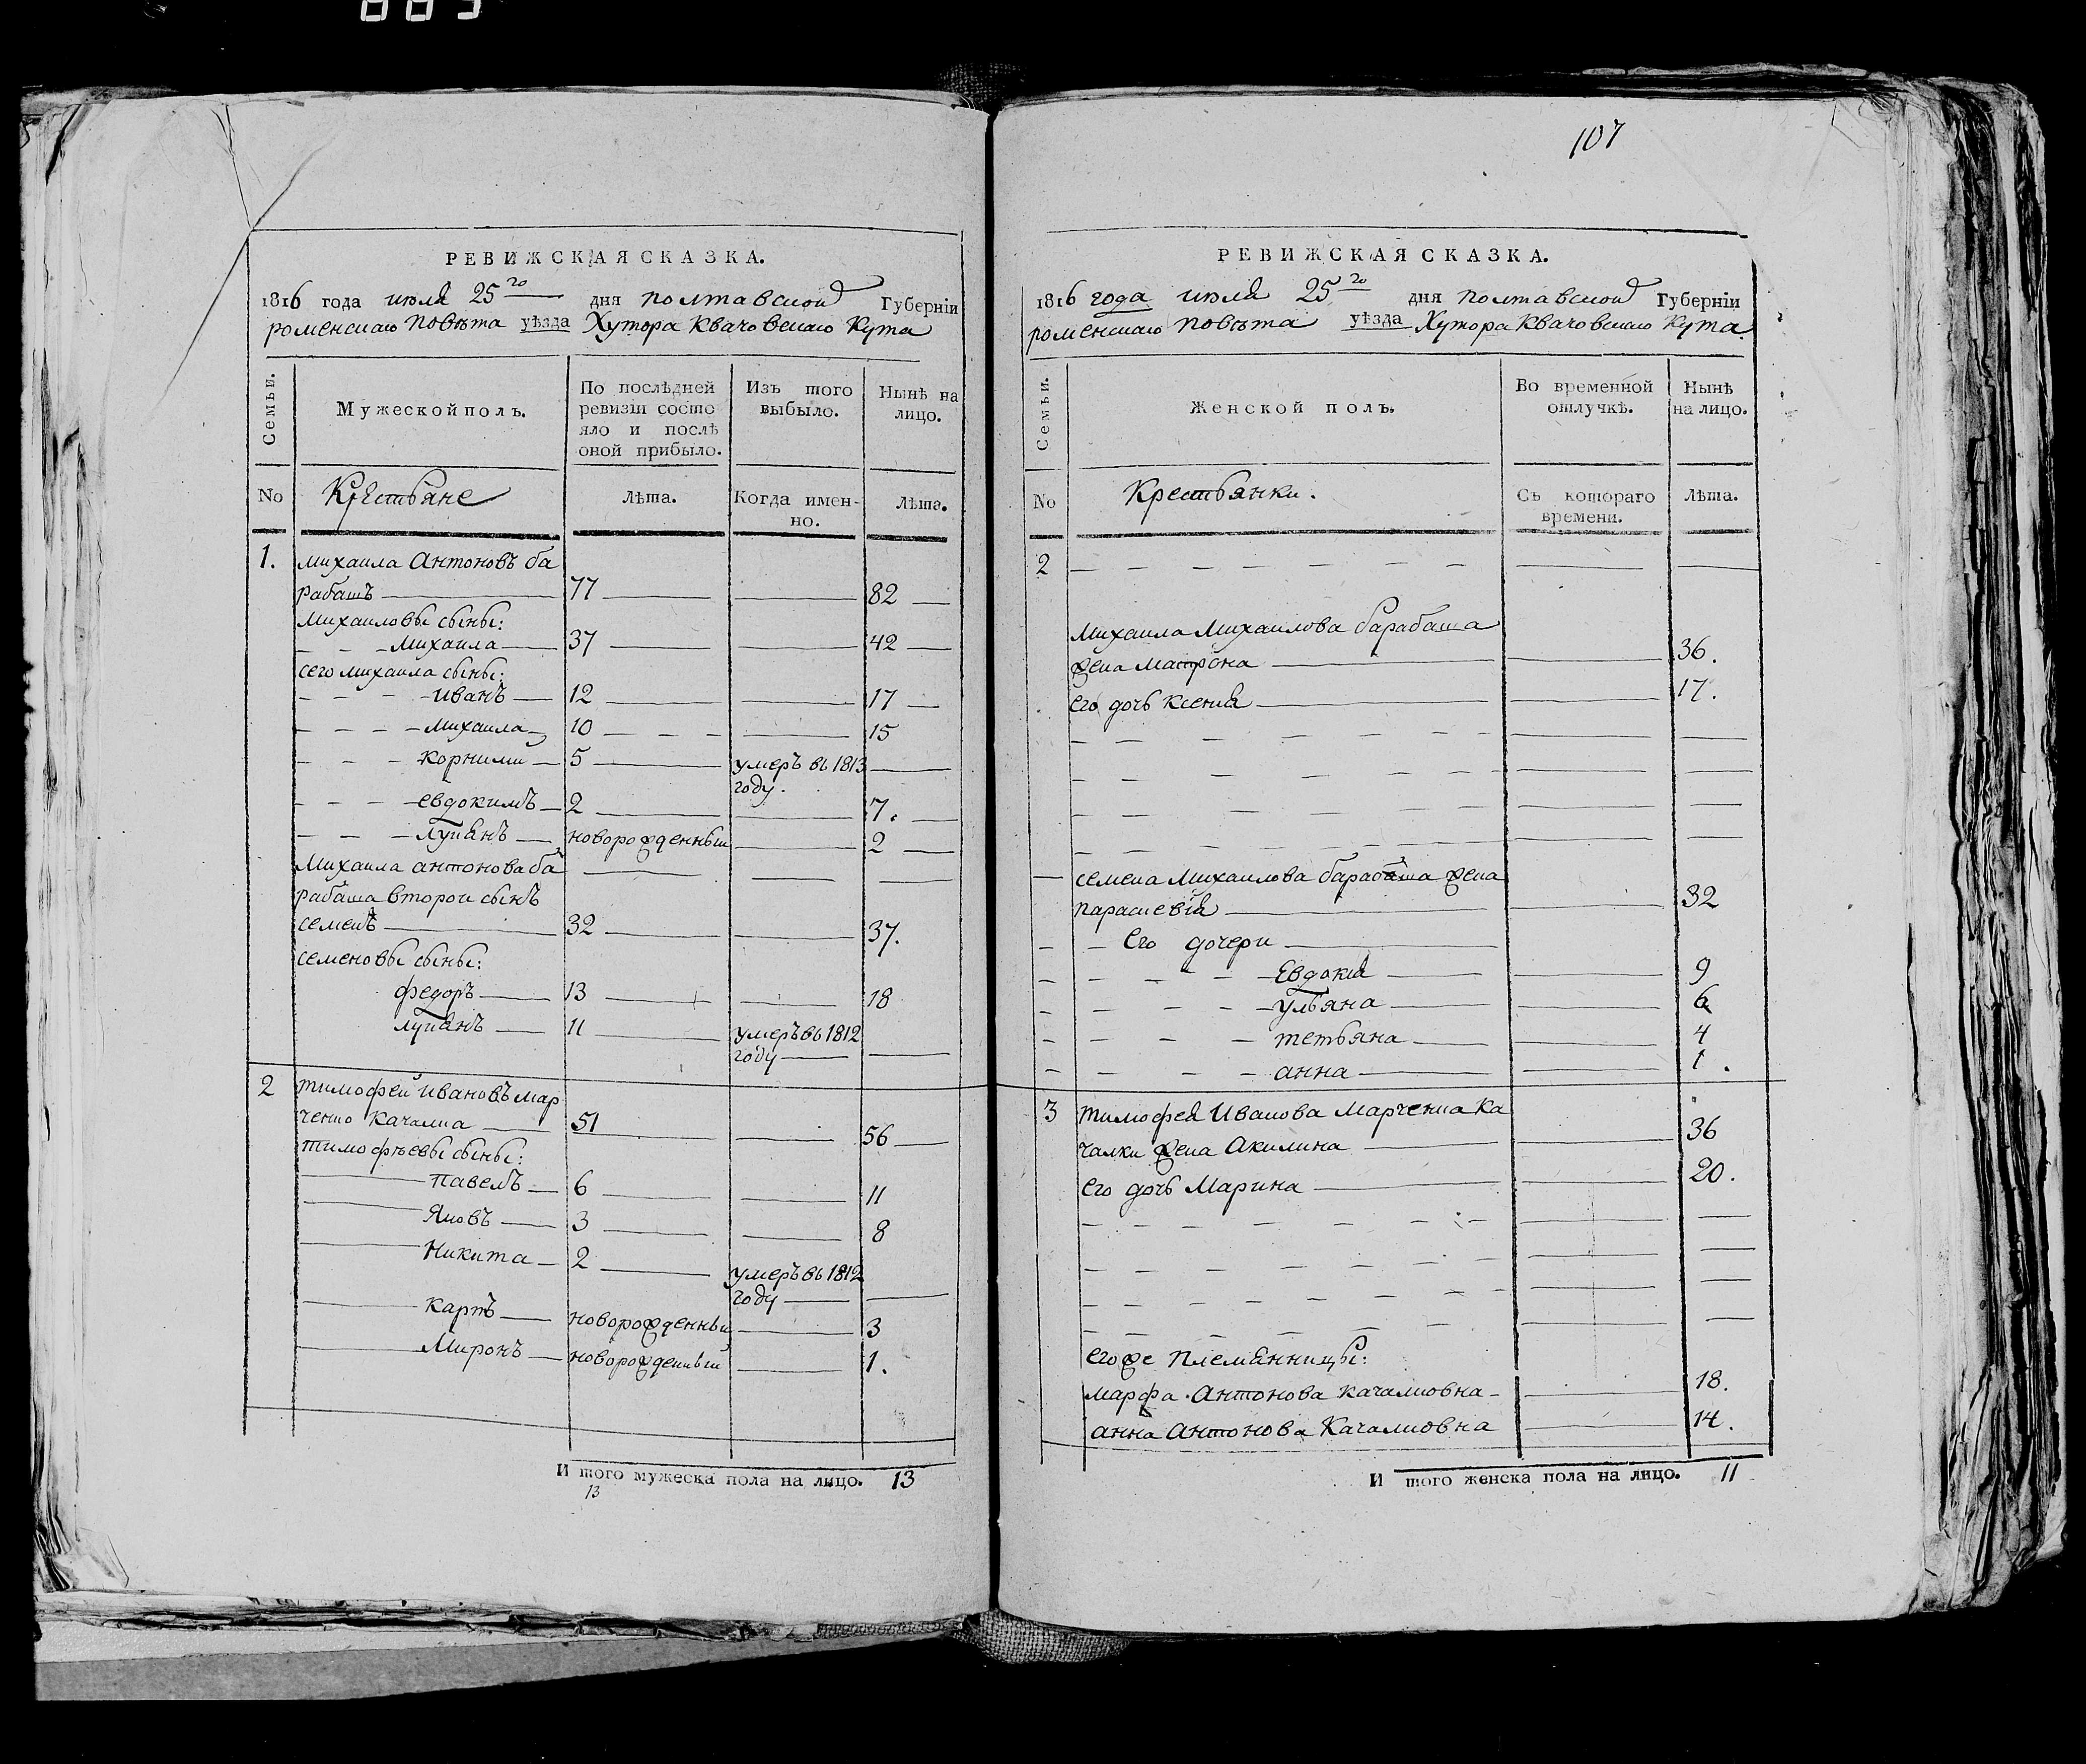 003
107
РЕВИЖСКАЯ СКАЗКА.
1816 года июля 25го дня полтавской Губерніи
роменскаго повѣта уѣзда Хутора Квачовскаго Кута
Семьи.
Мужеской полъ.
По послѣдней
ревизіи состо
яло и послѣ
оной прибыло.
Изъ того
выбыло.
Нынѣ на
лицо.
No
Крестьяне
Лѣта.
Когда имен-
но.
Лѣта.
1. михаила Антоновъ ба
рабашъ 77 82
Михаиловы сыны:
Михаила 37 42
сего михаила сыны:
иванъ 12 17
михаила 10 15
корнилий 5 умеръ въ 1813
году.
евдокимъ 2 7.
лукянъ новорожденный 2
Михаила антонова ба
рабаша второй сынъ
семенъ 32 37.
семеновы сыны:
федоръ 13 18
лукянъ 11 умеръ въ 1812
году
2 тимофей ивановъ мар
ченко качалка 51 56
тимофѣевы сыны:
павелъ 6 11
Яковъ 3 8
Никита 2 умеръ въ 1812
году
карпъ новорожденный 3
Миронъ новорожденный 1.
И того мужеска пола на лицо. 13
13
РЕВИЖСКАЯ СКАЗКА.
1816 года июля 25го дня полтавской Губерніи
роменскаго повѣта уѣзда Хутора Квачовскаго Кута.
Семьи.
Женской полъ.
Во временной
отлучкѣ.
Нынѣ
на лицо.
No
Крестьянки.
Съ котораго
времени.
Лѣта.
2
Михаила Михаилова барабаша
жена матрона 36.
его дочь ксения 17.
семена Михаилова барабаша жена
параскевія 32
его дочери
Евдокия 9
ульяна 6
тетьяна 4
анна 1.
3 тимофея Иванова Марченка Ка
чалки жена Акилина 36
его дочь Марина 20.
его же племянницы:
марфа Антонова качалковна 18.
анна Антонова Качалковна 14.
И того женска пола на лицо. 11